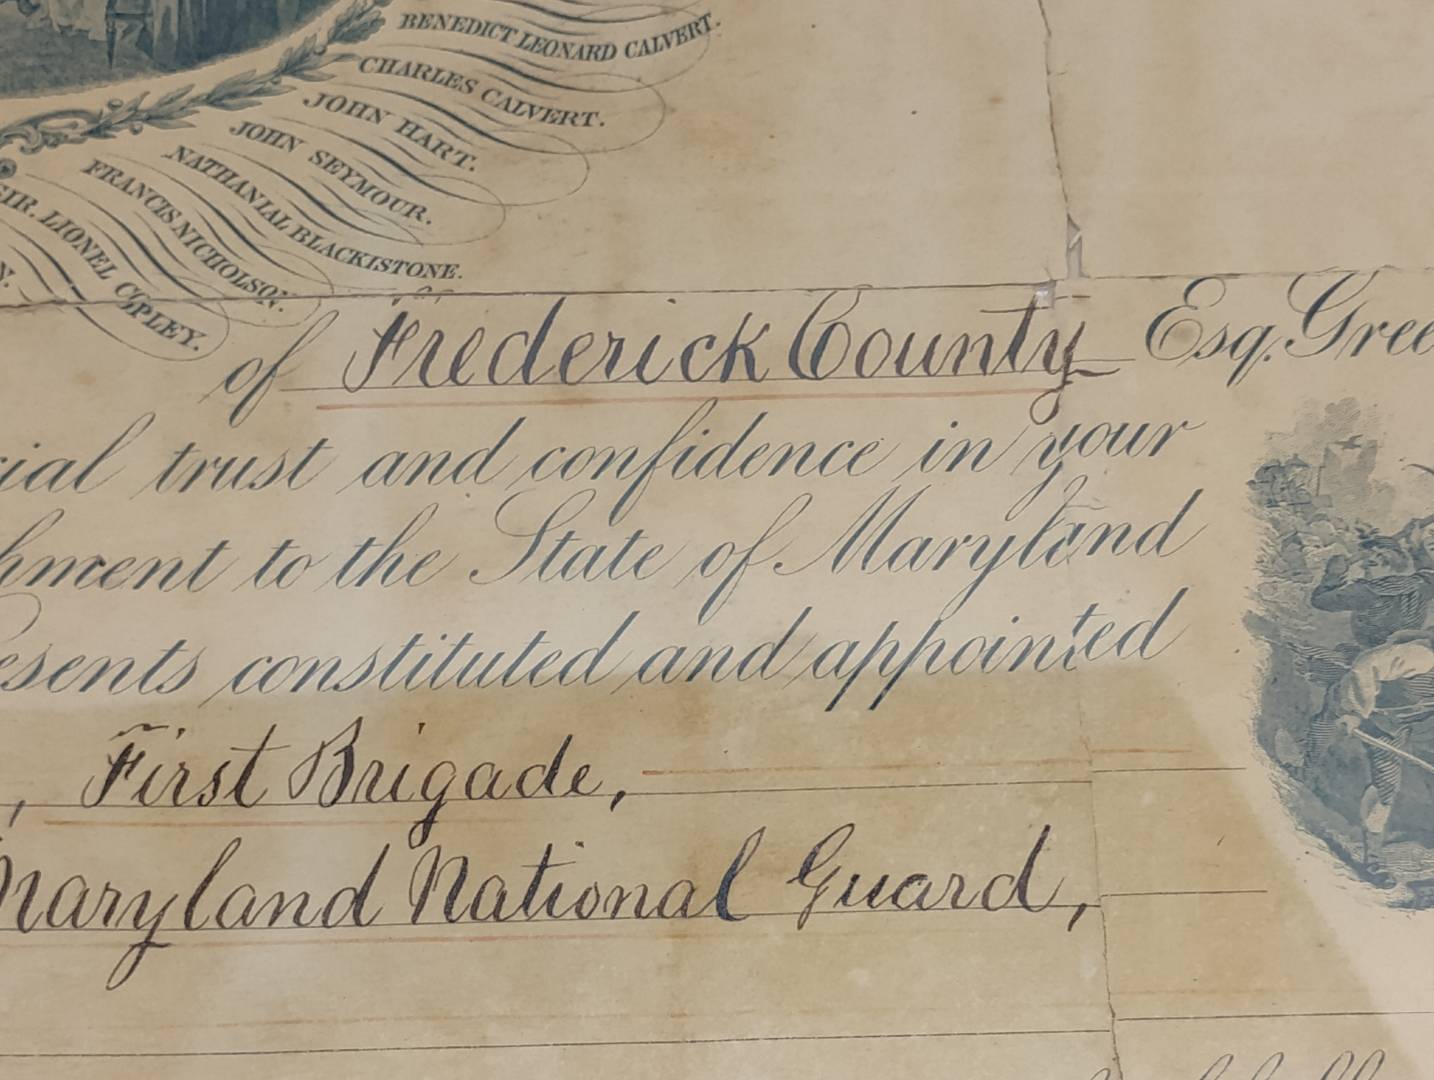 BENEDICT LEONARD CALVERT.
CHARLES CALVERT.
JOHN HART.
JOHN SEYMOUR.
NATHANIAL BLACKISTONE.
FRANCIS NICHOLSON.
SIR. LIONEL COPLEY.
N.
of Frederick County Esq. Gree
cial trust and confidence in your
hment to the State of Maryland
esents constituted and appointed
, First Brigade,
Maryland National Guard,